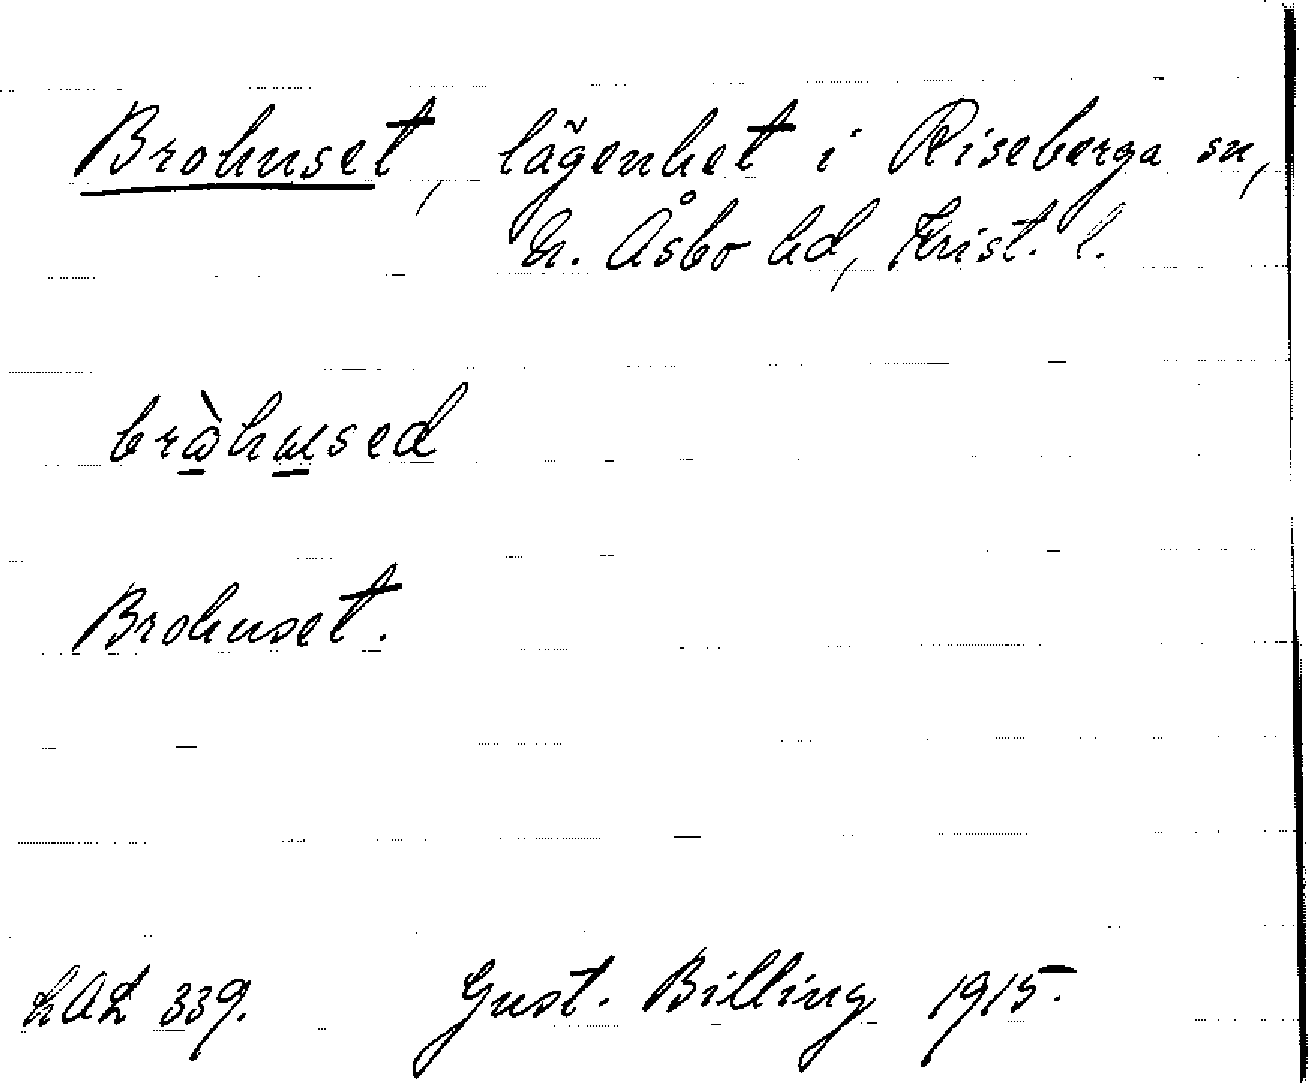 Brohuset, lägenhet i Riseberga sn,
N. Åsbo hd, Krist. l.
bròhused
Brohuset.
LAL 339. Gust. Billing 1915.